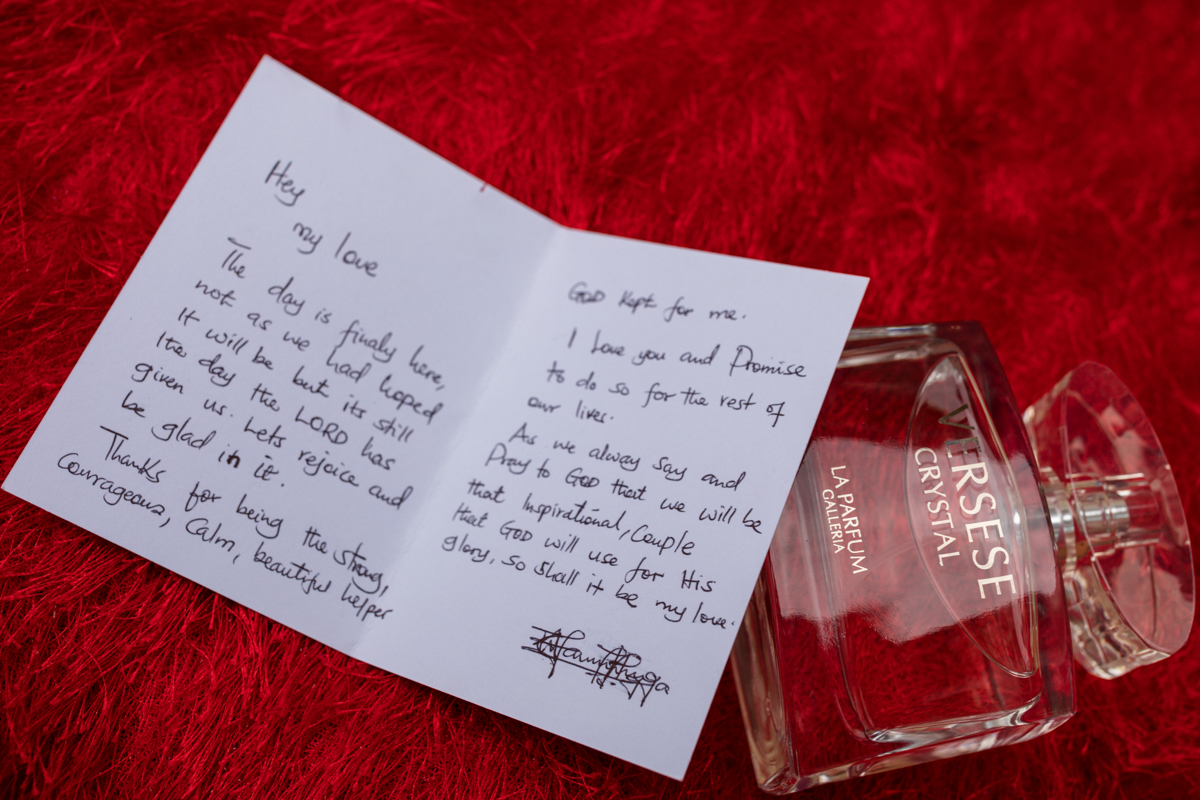 Hey
my love
The day is finaly here,
not as we had hoped
It will be but its still
the day the LORD has
given us. Lets rejoice and
be glad in it.
Thanks for being the strong,
Courageous, Calm, beautiful helper
GOD kept for me.
I love you and Promise
to do so for the rest of
our lives.
As we alway say and
Pray to GOD that we will be
that Inspirational, Couple
that GOD will use for His
glory, so shall it be my love.
VERSESE
CRYSTAL
LA PARFUM
GALLERIA